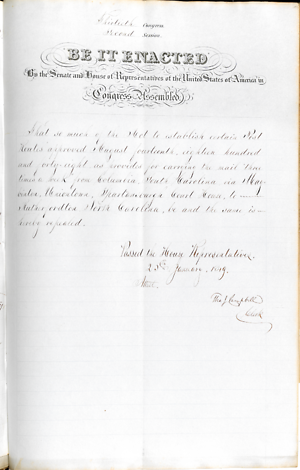 Thirtieth Congress
Second Session
BE IT ENACTED
By the Senate and House of Representatives of the United States of America in
Congress Assembled,
That so much of the Act to establish certain Post
Routes approved August fourteenth, eighteen hundred
and forty-eight as provides for carrying the mail three
times a week from Columbia South Carolina via
Unionville, Spartanburgh Court House, to
Rutherfordton North Carolina, be and the same is
hereby repealed.
Passed the House Representatives
23rd January, 1849.
Attest.
Tho. J. Campbell
Clerk